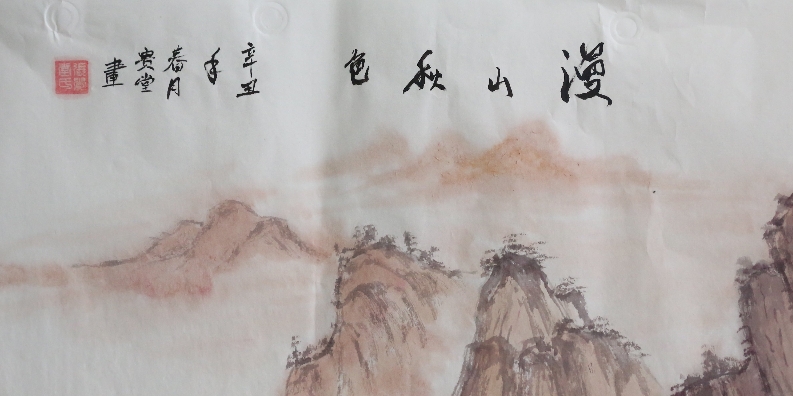 漫山秋色
辛丑
年
春月
贵堂
畫